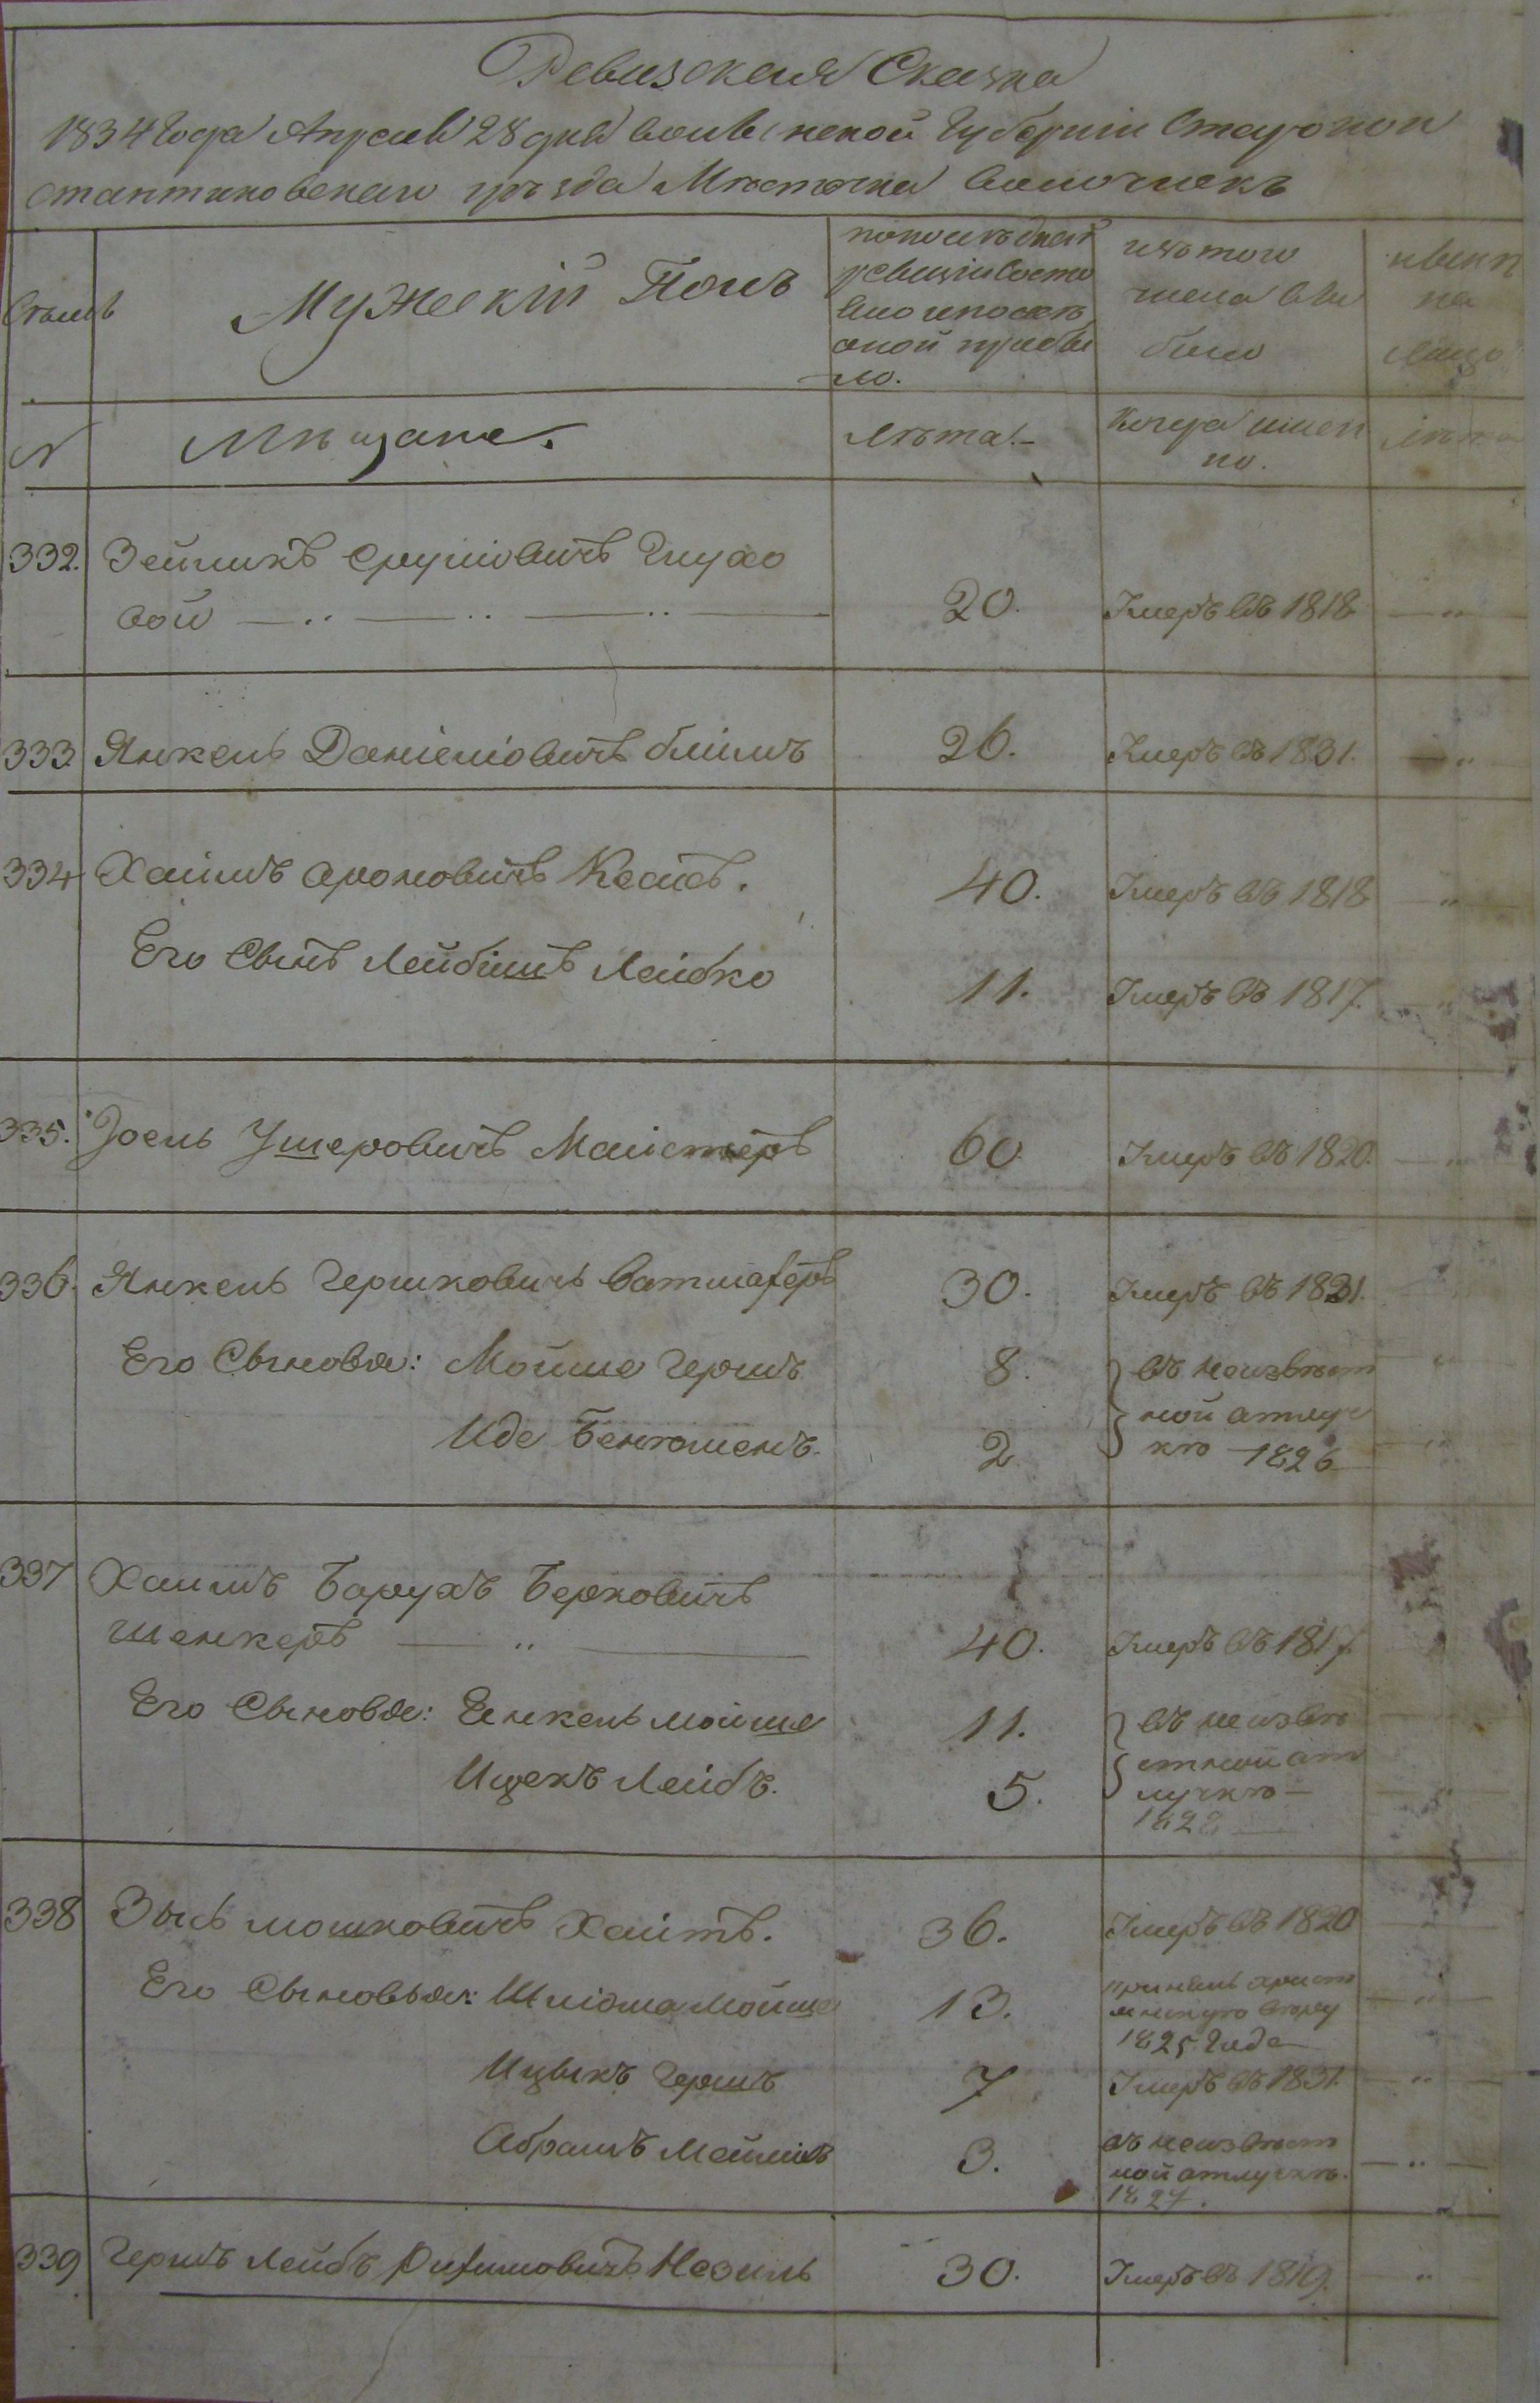 Ревизская Сказка
1834 Года Апреля 28 дня Волынской Губернiи Староконс
стантиновскаго уѣзда Мѣстечка Волочискъ
Семья
Мужескiй Полъ
по последней
ревизiи состо
яло и после
оной прибы
ло.
изъ того
числа вы
было
нынѣ
на
лицо
N
Мѣщане.
Лѣта.
Когда имен
но.
Лѣта
332. Зейликъ Срулiовичъ Глухо
вой — " — " — " — 20. Умеръ въ 1818 — "
333 Янкель Данiелiовичъ блiмъ 26. Умеръ въ 1831. — "
334 Хаимъ Ароновичъ Кеaйсъ. 40. Умеръ въ 1818 — "
Его Сынъ Лейбишъ Лейбко 11. Умеръ въ 1817. — "
335. Iоель Ушеровичъ Маистеръ 60 Умеръ въ 1820. — "
336. Янкель Гершковичъ Ватмаферъ 30. Умеръ въ 1831.
Его Сыновья: Мойше Гершъ 8. въ неизвѣст
ной отлуч
Иде Бенюменъ. 2 кѣ — 1826 — "
337 Хаимъ Барухъ Берковичъ
Шенкеръ — " — 40. Умеръ въ 1817.
Его Сыновья: Енкель Мойше 11. въ неизвѣ
стной от
Ицекъ Лейбъ. 5. лучкѣ —
1828 —
338 Зысь Мошковичъ Хаитъ. 36. Умеръ въ 1820
Его Сыновья: Шлiома Мойше 13. принялъ христi
янскую вѣру
1825 Года —
Ицыкъ Гершъ 7 Умеръ въ 1831. — "
Абрамъ Мейлихъ 3. въ неизвѣст
ной отлучкѣ. — " —
1827.
339 Гершъ Лейбъ Рифиловичъ Незиль 30. Умеръ въ 1819. — "